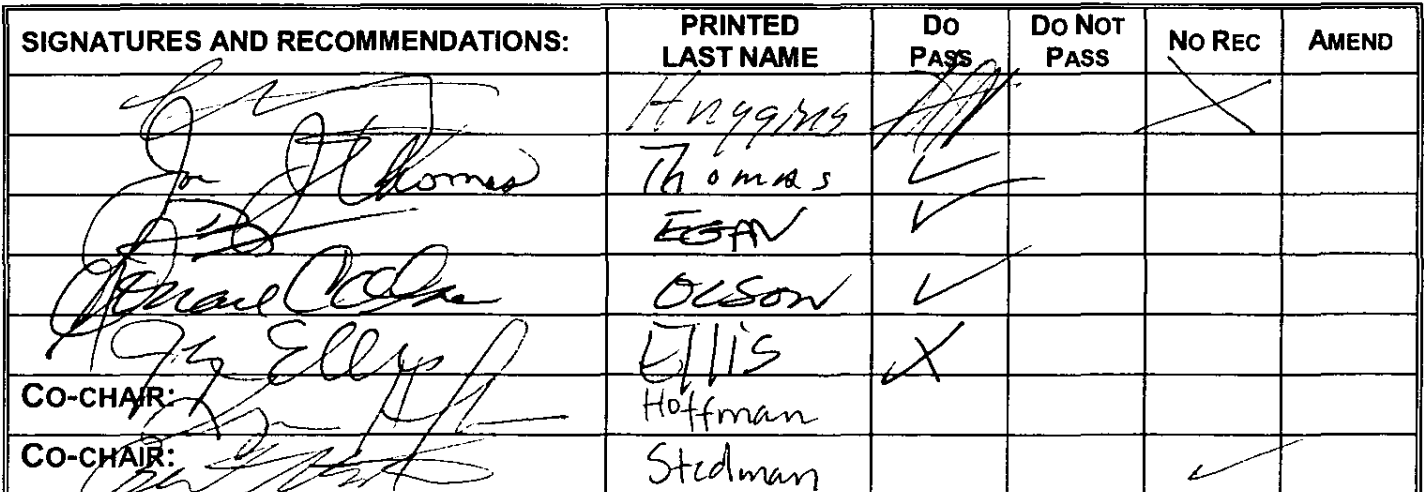 SIGNATURES AND RECOMMENDATIONS: PRINTED LAST NAME DO PASS DO NOT PASS NO REC AMEND
Huggins
Thomas Thomas ✓
EGAN ✓
OLSON ✓
Ellis Ellis X
CO-CHAIR: Hoffman
CO-CHAIR: Stedman ✓